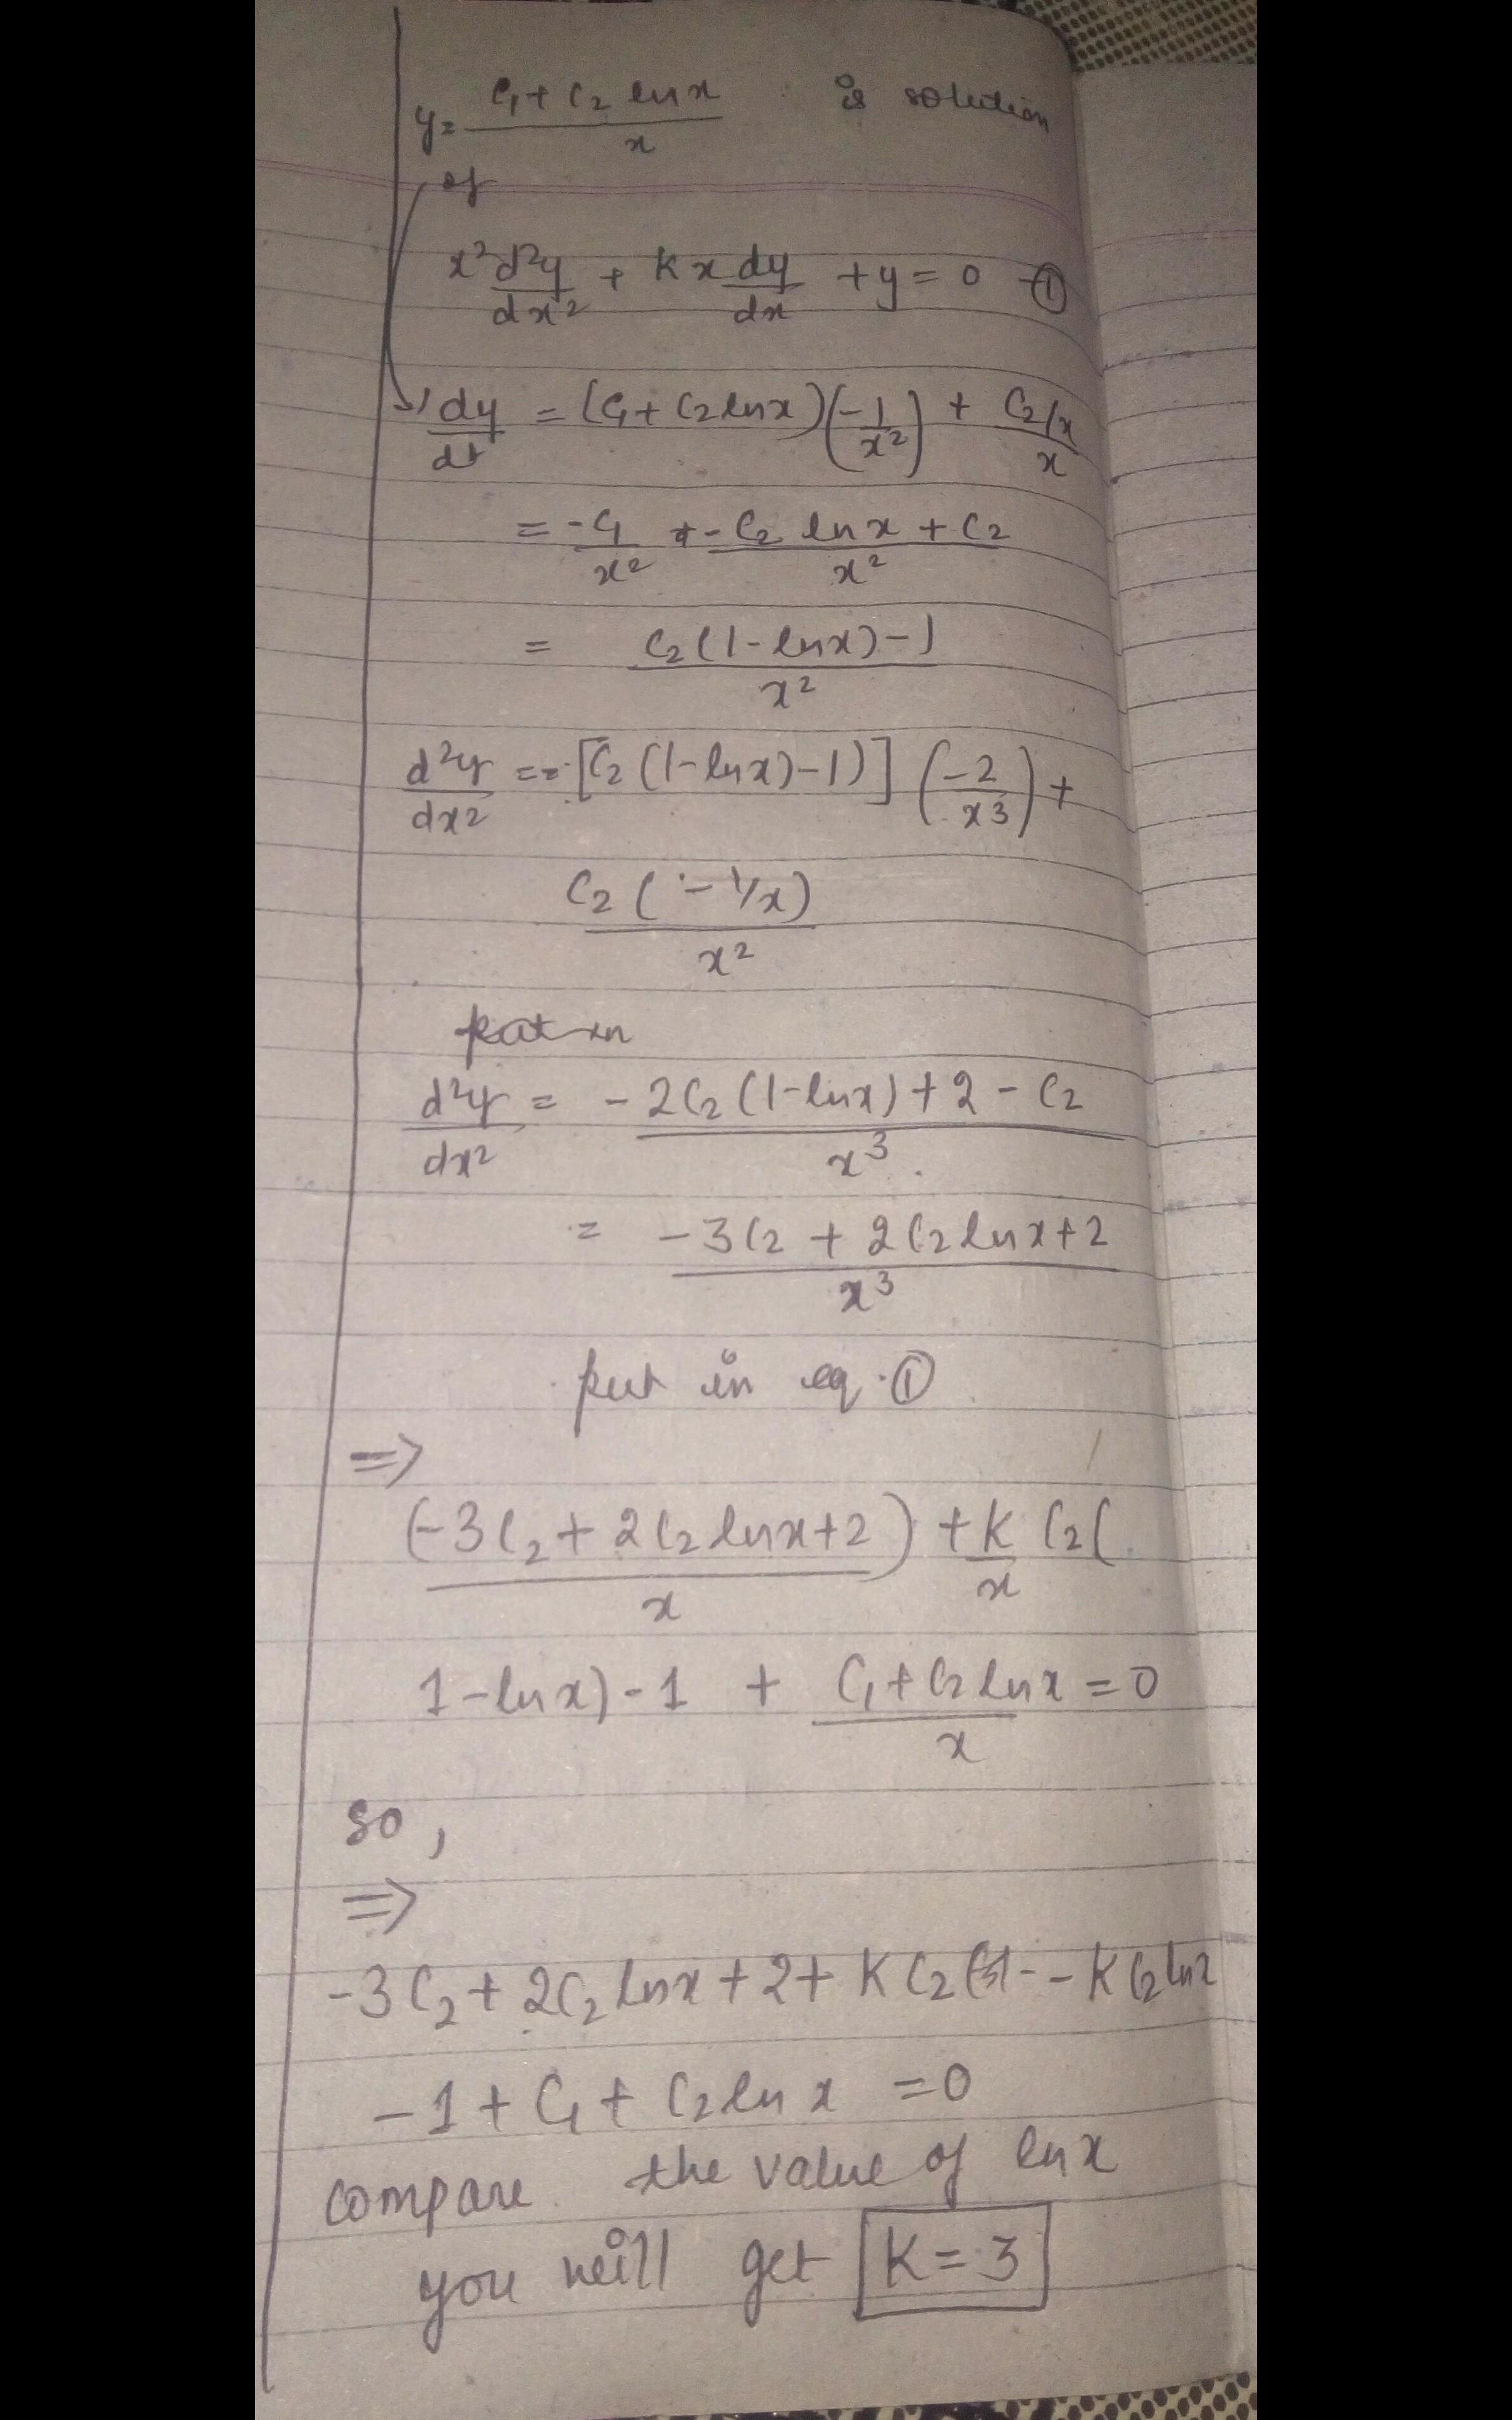 y = (C₁ + C₂ ln x)/x is solution
of
x² d²y/dx² + K x dy/dx + y = 0 -①
dy/dt = (C₁ + C₂ ln x)(-1/x²) + (C₂/x)/x
= -C₁/x² + (-C₂ ln x + C₂)/x²
= (C₂(1 - ln x) - 1)/x²
d²y/dx² == [C₂(1 - ln x) - 1)] (-2/x³) +
C₂(-1/x)/x²
put in
d²y/dx² = (-2C₂(1 - ln x) + 2 - C₂)/x³
= (-3C₂ + 2C₂ ln x + 2)/x³
put in eq. ①
⇒
(-3C₂ + 2C₂ ln x + 2)/x + K/x C₂(
1 - ln x) - 1 + (C₁ + C₂ ln x)/x = 0
so,
⇒
-3C₂ + 2C₂ ln x + 2 + K C₂ - K C₂ ln x
-1 + C₁ + C₂ ln x = 0
compare the value of ln x
you will get K = 3